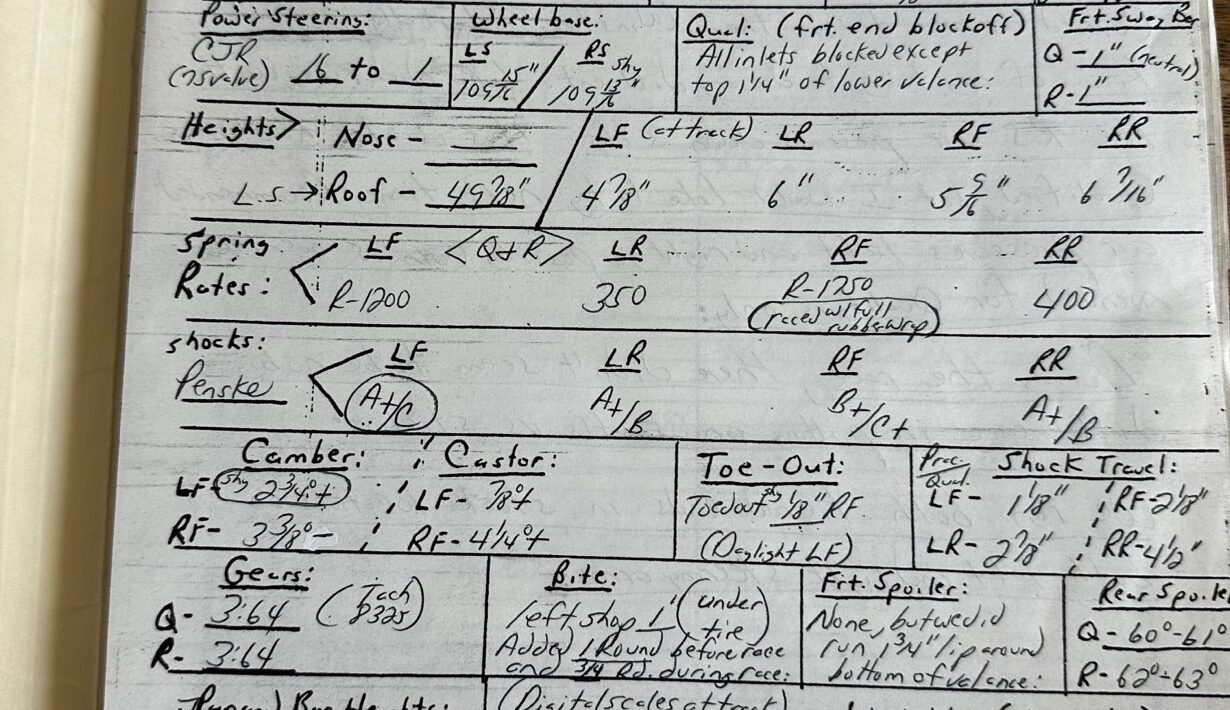 Power Steering:
CJR
(ns valve) 16 to 1
Wheelbase:
LS / RS shy
109 15/16" / 109 13/16"
Qual: (frt. end blockoff)
All inlets blocked except
top 1 1/4" of lower valance:
Frt. Sway Bar
Q - 1" (neutral)
R - 1"
Heights> Nose -
L.S. → Roof - 49 7/8"
LF (at track) LR RF RR
4 7/8" 6" 5 9/16" 6 7/16"
Spring Rates:
LF <Q+R> LR RF RR
R-1200 350 R-1250 400
(raced w/full
rubber wrap)
Shocks:
Penske
LF LR RF RR
A+/C A+/B B+/C+ A+/B
Camber:
LF- shy 2 3/4°+
RF- 3 3/8°-
Castor:
LF- 7/8°+
RF- 4 1/4°+
Toe-Out:
Toed out shy 1/8" RF.
(Daylight LF)
Prac./Qual. Shock Travel:
LF- 1 1/8" RF- 2 1/8"
LR- 2 7/8" RR- 4 1/2"
Gears:
Q- 3:64 (Tach
8325)
R- 3:64
Bite:
left shop 1" (under
tire)
Added 1 Round before race
and 3/4 Rd. during race:
Frt. Spoiler:
None, but we did
run 1 3/4" lip around
bottom of valance:
Rear Spoile
Q- 60°-61°
R- 62°-63°
(Digital scales at track)